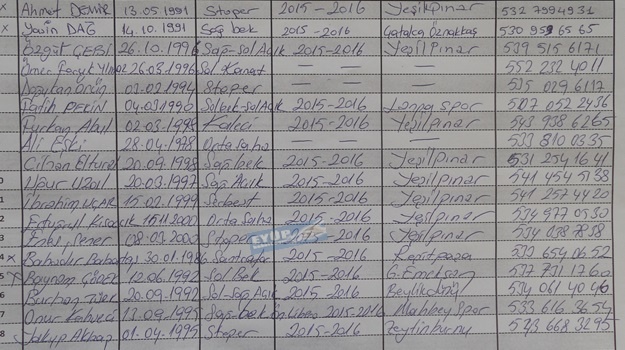 x Ahmet Demir 13.05.1991 Stoper 2015-2016 Yeşilpınar 532 7994931
x Yasin DAĞ 14.10.1991 Sağ bek 2015-2016 Çatalca Öznakkaş 530 959 65 65
Özgür 26.10.1996 Sağ-sol Açık 2015-2016 Yeşilpınar 539 515 6171
Ömer Faruk Yılmaz 26.03.1996 Sol Kanat — — — 552 232 4011
03.02.1994 Stoper — — — 535 029 6117
Fatih 04.03.1990 Solbek-sol Açık 2015-2016 spor 507 052 2436
Furkan 02.03.1998 Kaleci 2015-2016 Yeşilpınar 543 938 6265
Ali Eski 28.04.1978 Orta saha — — — 533 810 0335
Cihan 20.09.1998 Sağ bek 2015-2016 Yeşilpınar 531 254 1641
0 Uğur 20.03.1997 Sağ Açık 2015-2016 Yeşilpınar 541 454 5138
1 İbrahim UÇAR 15.02.1999 Serbest 2015-2016 Yeşilpınar 541 257 4420
2 Ertuğrul 15.11.2000 Orta Saha 2015-2016 Yeşilpınar 534 977 0530
3 Şener 08.03.2000 Stoper 2015-2016 Yeşilpınar 534 038
4 x Bahadır 30.01.1986 Santrafor 2015-2016 539 654 0652
5 x Bayram 12.06.1992 Sol Bek 2015-2016 G.Emekspor 537 731 1760
6 Burhan 20.09.1992 Sol-Sağ Açık 2015-2016 Beylikdüzü 534 061 4096
7 Onur Kahveci 13.09.1995 Sağ-bek Ön Libero 2015-2016 Mahbey Spor 533 616 3654
8 Yakup Akbaş 01.04.1995 Stoper 2015-2016 Zeytinburnu 533 668 3295